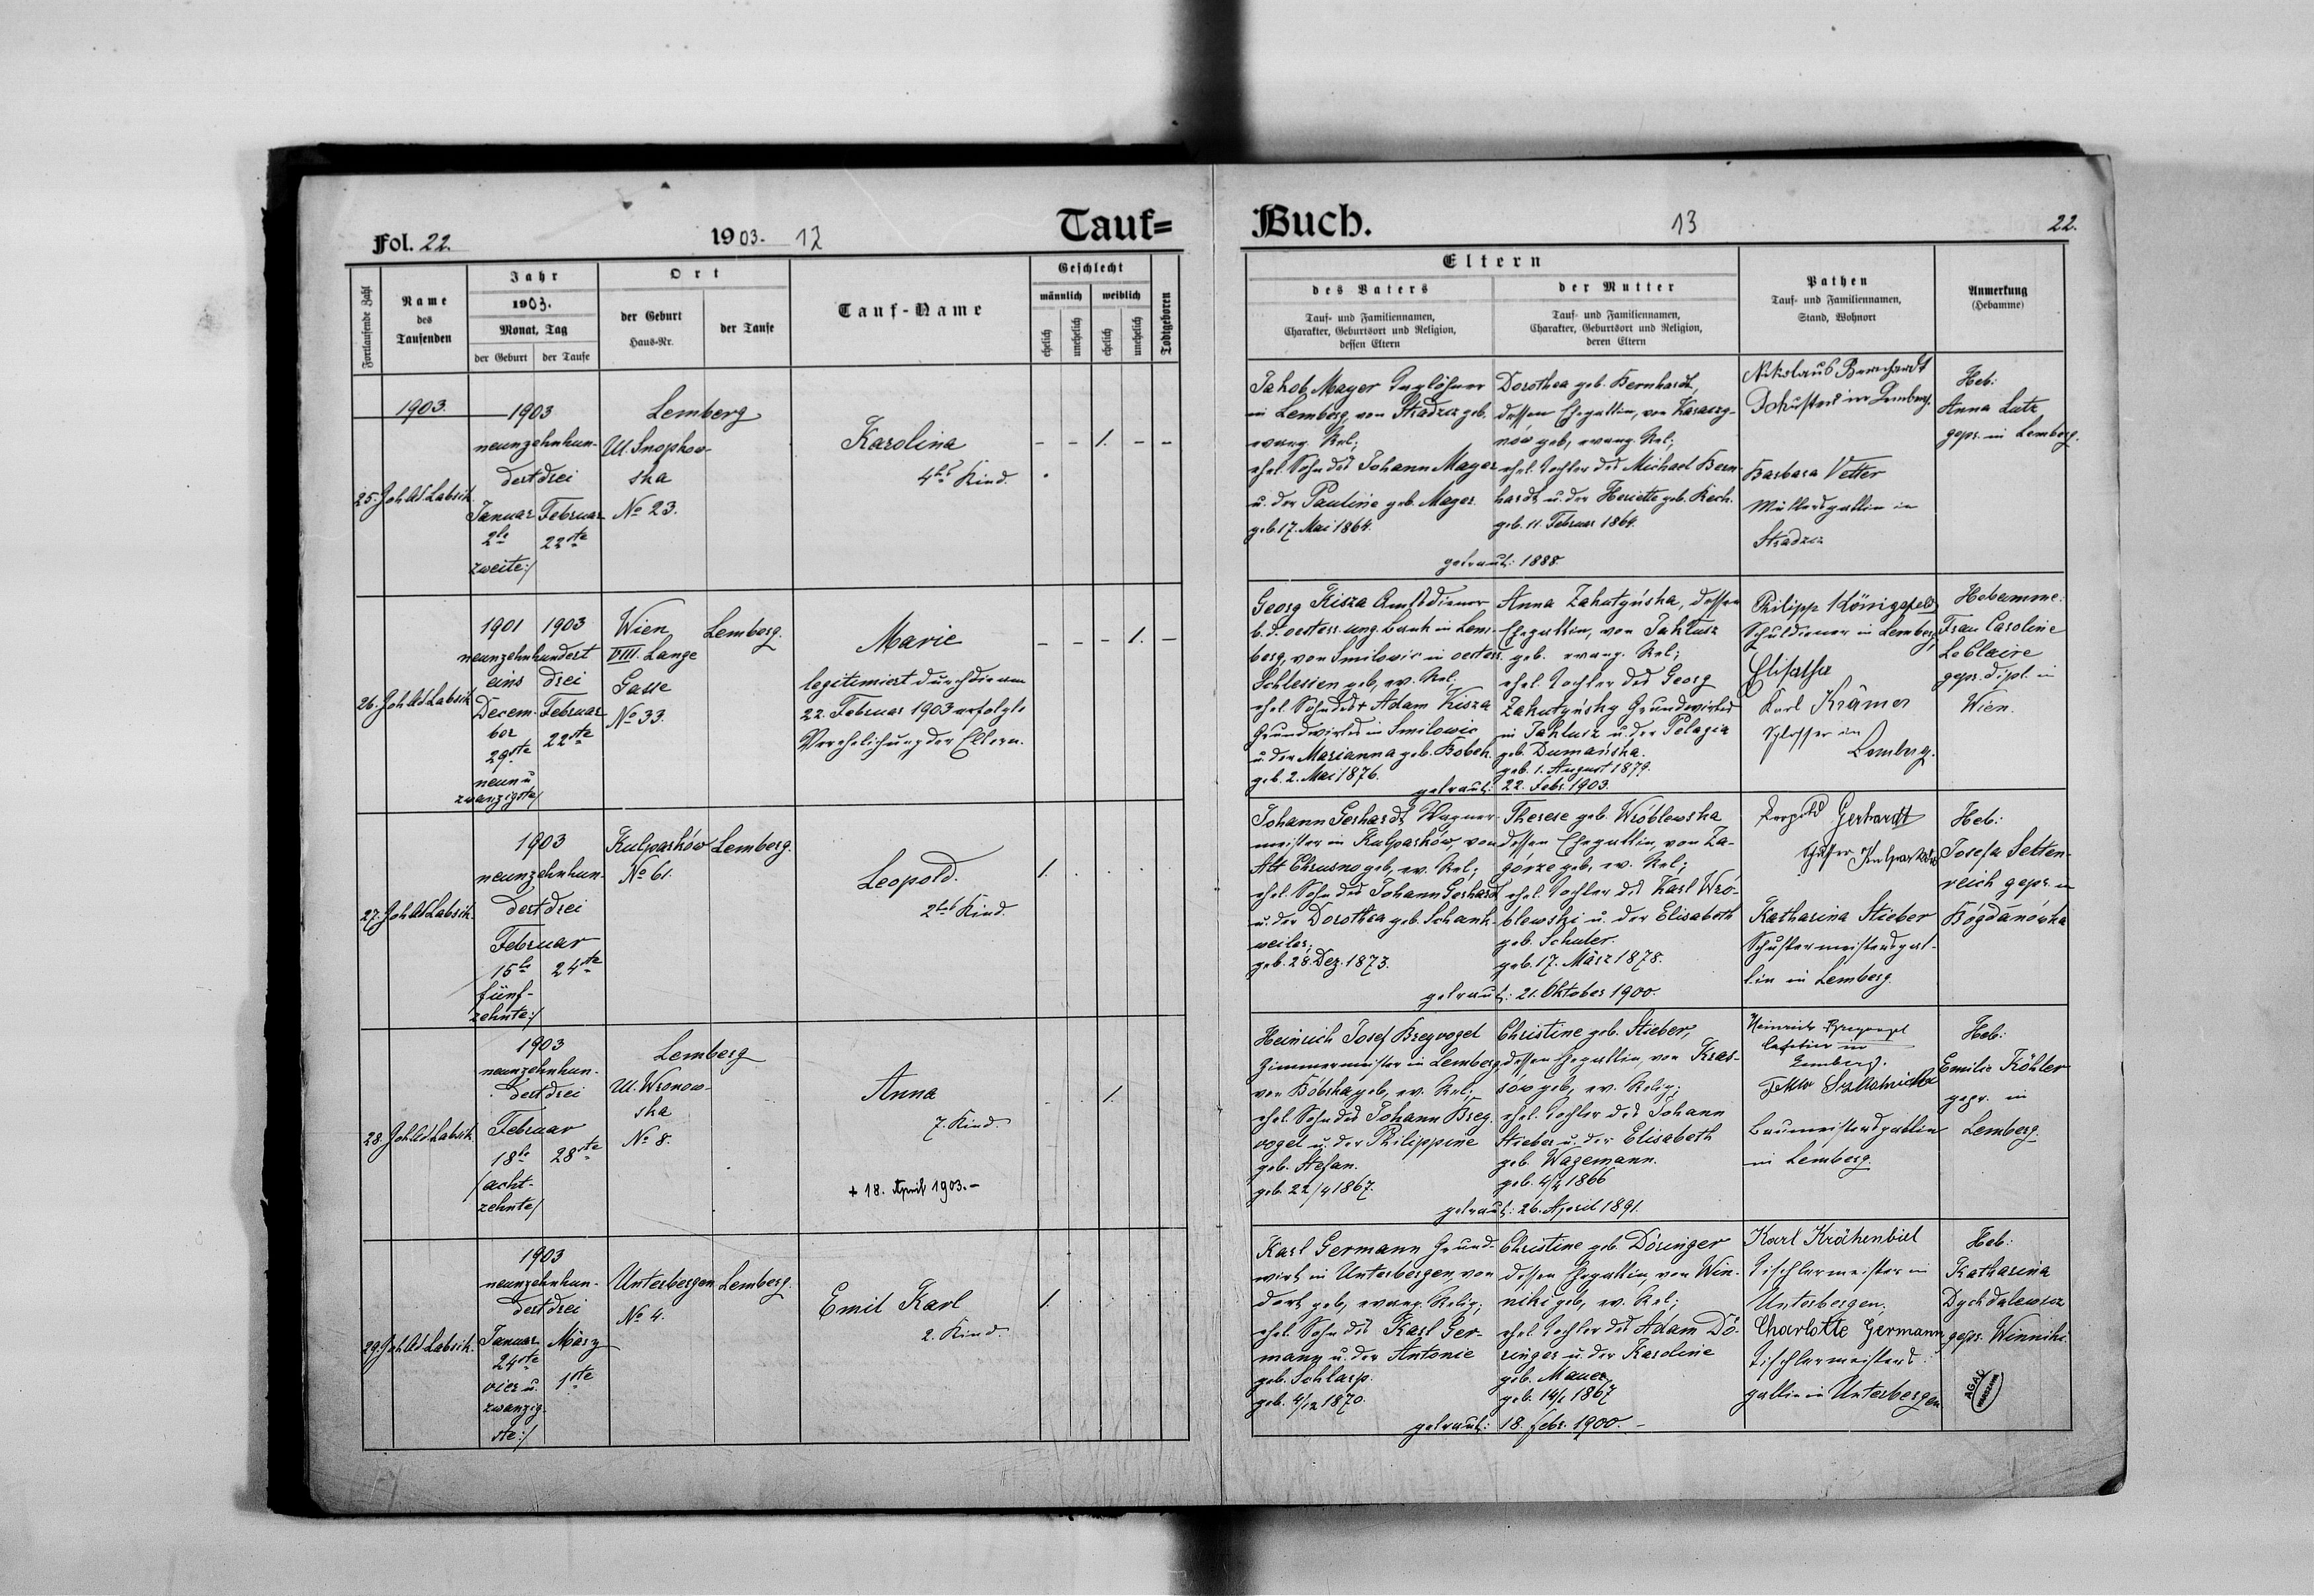 Fol. 22.
1903. 12
Tauf=
Fortlaufende Zahl
Name des Taufenden
Jahr
1903.
Monat, Tag
der Geburt
der Taufe
Ort
der Geburt
Haus-Nr.
der Taufe
Tauf-Name
Geschlecht
männlich
weiblich
ehelich
unehelich
ehelich
unehelich
Todtgeboren
1903.
25. Joh. Labsik
1903
neunzehnhun-
dertdrei
Januar Februar
2te 22ste
zweite:/
Lemberg
Ul. Snopkow-
ska
No 23.
Karolina
4tes Kind.
- - 1. - -
26. Joh. Labsik
1901 1903
neunzehnhundert
eins drei
Decem- Februar
ber
29ste 22ste
neun u
zwanzigste/
Wien
VIII. Lange
Gasse
No 33.
Lemberg.
Marie
legitimiert durch die am
22. Februar 1903 erfolgte
Verehelichung der Eltern.
- - - 1. -
27. Joh. Labsik.
1903
neunzehnhun-
dertdrei
Februar
15te 24ste
fünf-
zehnte:/
Kulparków
No 61.
Lemberg.
Leopold.
2tes Kind.
1.
28. Joh. Labsik
1903
neunzehnhun-
dertdrei
Februar
18te 28ste
/acht-
zehnte/
Lemberg
Ul. Wronow-
ska
No 8.
Anna
7. Kind
+ 18. April 1903.-
1.
29. Joh. Labsik.
1903
neunzehnhun-
dertdrei
Januar März
24ste
vier u. 1ste
zwanzig-
ste:/
Unterbergen
No 4.
Lemberg.
Emil Karl
2. Kind.
1.
Buch.
13
22.
Eltern
des Vaters
Tauf- und Familiennamen,
Charakter, Geburtsort und Religion,
dessen Eltern
der Mutter
Tauf- und Familiennamen,
Charakter, Geburtsort und Religion,
deren Eltern
Pathen
Tauf- und Familiennamen,
Stand, Wohnort
Anmerkung
(Hebamme)
Jakob Mayer Taglöhner
in Lemberg, von Stradzez geb.
evang. Rel;
ehel. Sohn des Johann Mayer
u. der Pauline geb. Mayer.
geb. 17. Mai 1864.
Dorothea geb. Bernhardt,
dessen Ehegattin, von Kasaerg-
nów geb, evang. Rel;
ehel. Tochter des Michael Bern-
hardt u. der Heriette geb. Rech.
geb. 11. Februar 1864.
getraut: 1888.
Nikolaus Bernhardt
in Lemberg.
Barbara Vetter
Müllersgattin in
Stradzez
Heb:
Anna Lutz
gepr. in Lemberg.
Georg Kisza Amtsdiener
b. d. oesterr. ung. Bank in Lem-
berg, von Smilowic in oesterr.
Schlesien geb, ev. Rel;
ehel. Sohn des + Adam Kisza
Grundwirtes in Smilowic
u. der Marianna geb. Bobek.
geb. 2. Mai 1876.
Anna Zakutyńska, dessen
Ehegattin, von Jaktusz
geb. evang. Rel;
ehel. Tochter des Georg
Zakutyńsky Grundwirtes
in Jaktusz u. der Pelagia
geb. Dumańska.
geb. 1. August 1879.
getraut: 22. Febr. 1903.
Philipp Königsfeld
Schuldiener in Lemberg,
Elisatha
Karl Krämer
Schlosser in
Lemberg.
Hebamme:
Frau Caroline
LeClaire
gepr. dipl. in
Wien.
Johann Gerhardt Wagner-
meister in Kulparków, von
Alt Chrusno geb, ev. Rel;
ehel. Sohn des Johann Gerhardt
u. der Dorothea geb. Schank-
weiler;
geb. 28. Dez. 1873.
Therese geb. Wróblewska
dessen Ehegattin, von Za-
górze geb, ev. Rel;
ehel. Tochter des Karl Wró-
blewski u. der Elisabeth
geb. Schuler.
geb. 17. März 1878.
getraut: 21. Oktober 1900.
Leopold Gerhardt
Kulparków
Katharina Stieber
Schustermeistersgat-
tin in Lemberg.
Heb:
Josefa Setten-
reich gepr. in
Bógdanówka
Heinrich Josef Bregvogel
Zimmermeister in Lemberg,
von Bóbrka geb, ev. Rel;
ehel. Sohn des Johann Breg-
vogel u. der Philippine
geb. Stefan.
geb. 22/4 1867.
Christine geb. Stieber,
dessen Ehegattin, von Kras-
sów geb, ev. Relig;
ehel. Tochter des Johann
Stieber u. der Elisabeth
geb. Wagemann.
geb. 4/4 1866
getraut: 26. April 1891.
Heinrich Bregvogel
Cafetier in
Lemberg.
Baumeistersgattin
in Lemberg.
Heb:
Emilie Köhler
gepr. in
Lemberg.
Karl Germann Grund-
wirt in Unterbergen, von
dort geb, evang. Relig;
ehel. Sohn des Karl Ger-
mann u. der Antonie
geb. Schlarp.
geb. 4/12 1870.
Christine geb. Döringer
dessen Ehegattin, von Win-
niki geb, ev. Rel;
ehel. Tochter des Adam Dö-
ringer u. der Karoline
geb. Mauer
geb. 14/2 1867
getraut: 18. febr. 1900.-
Karl Krähenbiel
Tischlermeister in
Unterbergen.
Charlotte Germann
Tischlermeisters-
gattin in Unterbergen
Heb:
Katharina
Dychdalewicz
gepr. Winniki
AGAD
WARSZAWA